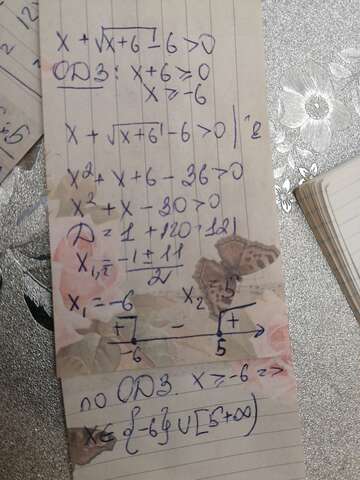 x + √x+6 - 6 > 0
ОДЗ: x+6 ≥ 0
x ≥ -6
x + √x+6 - 6 > 0 |^2
x² + x + 6 - 36 > 0
x² + x - 30 > 0
D = 1 + 120 = 121
x₁,₂ = -1 ± 11 / 2
x₁ = -6 x₂ = 5
+ - +
-6 5
по ОДЗ. x ≥ -6 =>
x ∈ {-6} ∪ [5+∞)